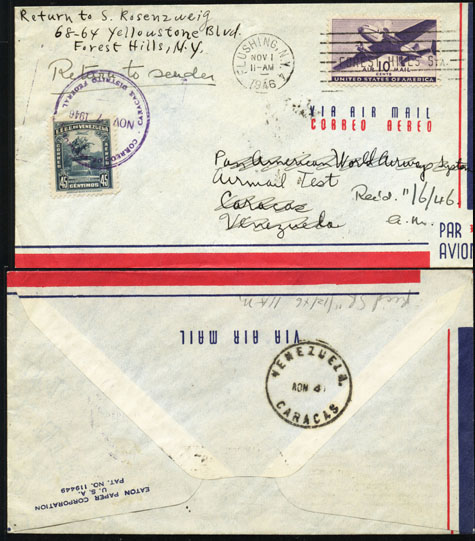 Return to S. Rosenzweig
68-64 Yellowstone Blvd.
Forest Hills, N.Y.
Return to sender
FLUSHING, N.Y.
NOV 1
11-AM
1946
FOREST HILLS STA.
AIR MAIL
10
CENTS
UNITED STATES OF AMERICA
VIA AIR MAIL
CORREO AEREO
CARACAS DISTRITO FEDERAL
NOV 7 1946
CORREO
E.E.U.U. DE VENEZUELA
45 45
CENTIMOS
Pan American World Airways System
Airmail Test
Caracas
Venezuela
Recd. 11/6/46
a.m.
PAR
AVION
VIA AIR MAIL
VENEZUELA
NOV
CARACAS
EATON PAPER CORPORATION
U. S. A.
PAT. NO. 119449